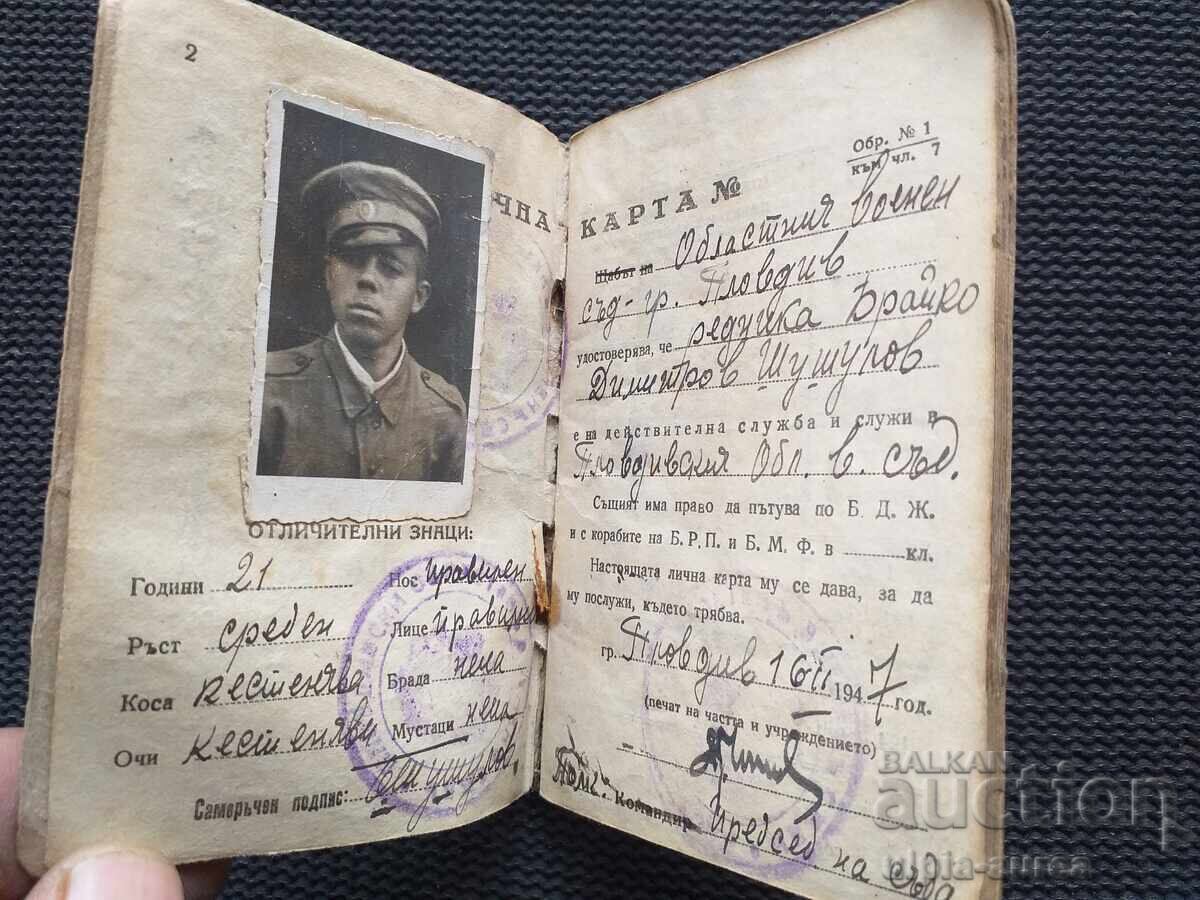 2
ЧНА
ОТЛИЧИТЕЛНИ ЗНАЦИ:
Години 21 Нос правилен
Ръст среден Лице правилно
Коса кестенява Брада нема
Очи кестеняви Мустаци нема
Саморъчен подпис:
Обр. № 1
към чл. 7
КАРТА №
Щабът на Областния военен
съд - гр. Пловдив
удостоверява, че редника Брайко
Димитров Шушулов
е на действителна служба и служи в
Пловдивския Обл. в. съд.
Същият има право да пътува по Б. Д. Ж.
и с корабите на Б. Р. П. и Б. М. Ф. в кл.
Настоящата лична карта му се дава, за да
му послужи, където трябва.
гр. Пловдив 16 II 1947 год.
(печат на частта и учреждението)
Командир Председ на съда
BALKAN
auction
ulpia-aurea